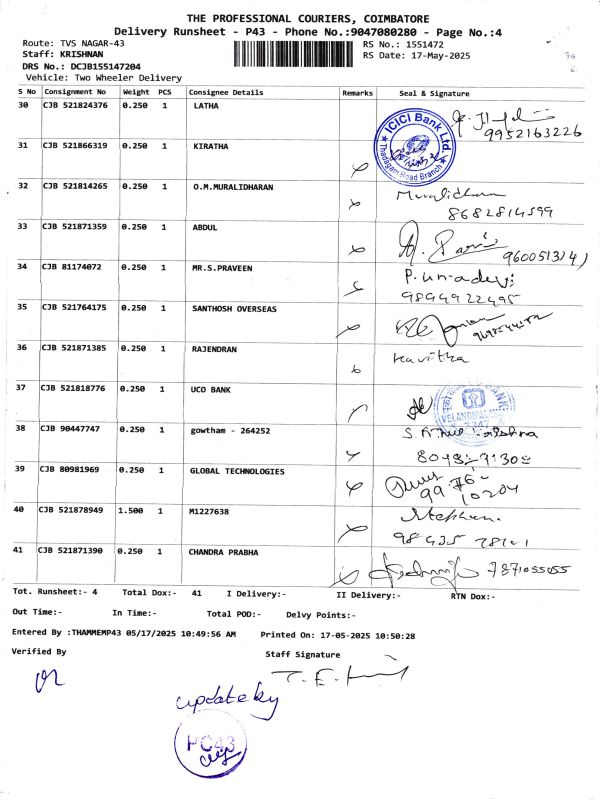 THE PROFESSIONAL COURIERS, COIMBATORE
Delivery Runsheet - P43 - Phone No.:9047080280 - Page No.:4
Route: TVS NAGAR-43
RS No.: 1551472
Staff: KRISHNAN
RS Date: 17-May-2025
DRS No.: DCJB155147204
Vehicle: Two Wheeler Delivery
S No Consignment No Weight PCS Consignee Details Remarks Seal & Signature
30 CJB 521824376 0.250 1 LATHA
9952163226
ICICI Bank Ltd.
Thadagam Road Branch
31 CJB 521866319 0.250 1 KIRATHA
32 CJB 521814265 0.250 1 O.M.MURALIDHARAN
Muralidharan
8682814599
33 CJB 521871359 0.250 1 ABDUL
34 CJB 81174072 0.250 1 MR.S.PRAVEEN
P. Umadevi
9894922495
35 CJB 521764175 0.250 1 SANTHOSH OVERSEAS
36 CJB 521871385 0.250 1 RAJENDRAN
Kavitha
37 CJB 521818776 0.250 1 UCO BANK
38 CJB 90447747 0.250 1 gowtham - 264252
39 CJB 80981969 0.250 1 GLOBAL TECHNOLOGIES
40 CJB 521878949 1.500 1 M1227638
Stephen.
41 CJB 521871390 0.250 1 CHANDRA PRABHA
7371055055
Tot. Runsheet:- 4 Total Dox:- 41 I Delivery:- II Delivery:- RTN Dox:-
Out Time:- In Time:- Total POD:- Delvy Points:-
Entered By :THAMMEMP43 05/17/2025 10:49:56 AM Printed On: 17-05-2025 10:50:28
Verified By Staff Signature
update by
PC43